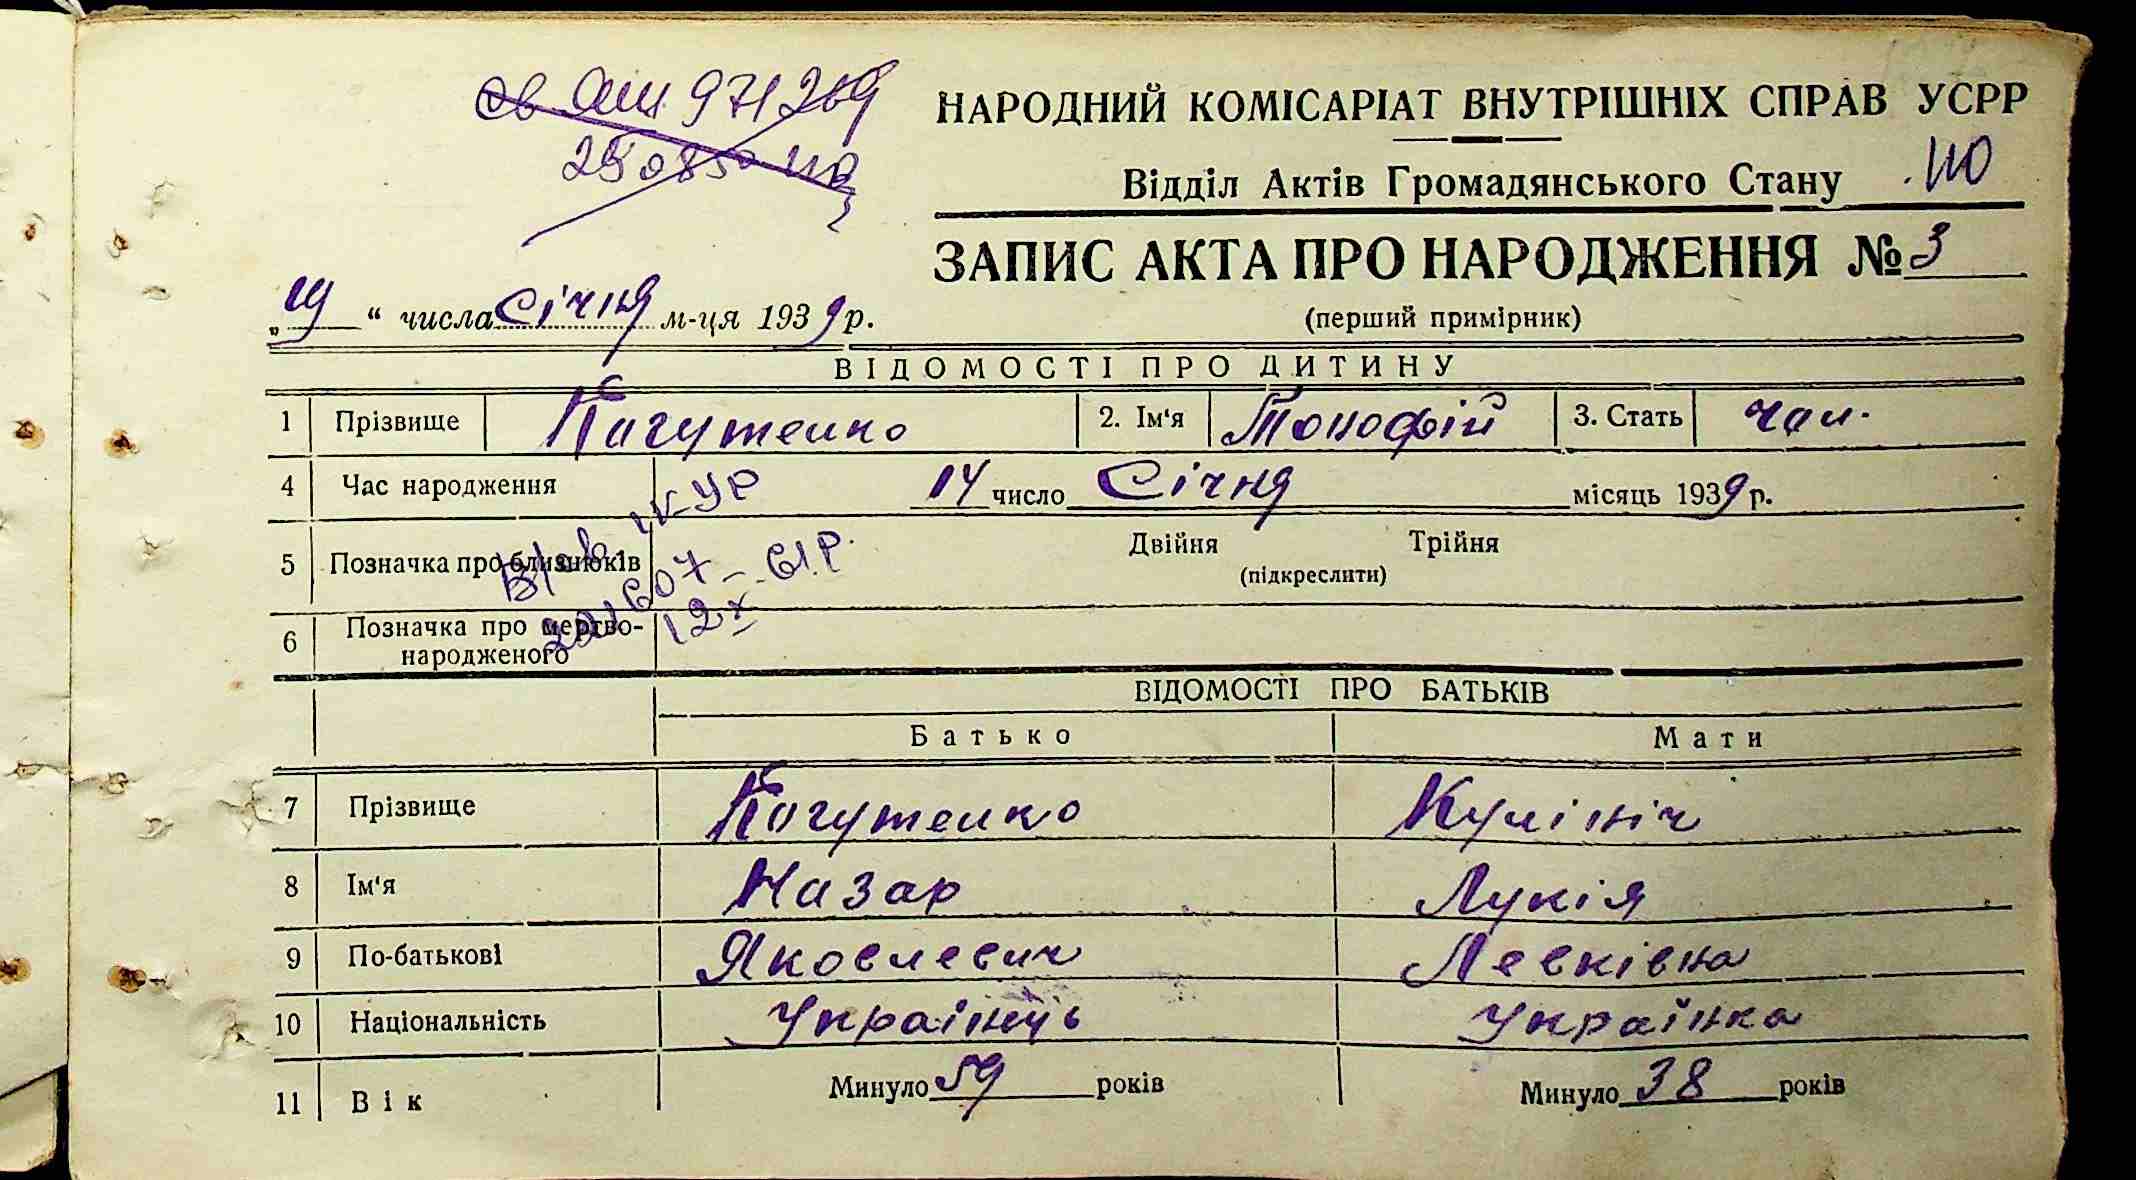 971269
НАРОДНИЙ КОМІСАРІАТ ВНУТРІШНІХ СПРАВ УСРР
Відділ Актів Громадянського Стану 110
ЗАПИС АКТА ПРО НАРОДЖЕННЯ № 3
(перший примірник)
„19“ числа Січня м-ця 1939 р.
ВІДОМОСТІ ПРО ДИТИНУ
1 Прізвище Пагутенко 2. Ім'я Тонофій 3. Стать чол.
4 Час народження 14 число Січня місяць 1939 р.
5 Позначка про близнюків Двійня Трійня
(підкреслити)
6 Позначка про мертво-
народженого
12 X 61.Р.
ВІДОМОСТІ ПРО БАТЬКІВ
Батько Мати
7 Прізвище Пагутенко Кулініч
8 Ім'я Назар Лукія
9 По-батькові Яковлевич Левківна
10 Національність Украінець Українка
11 Вік Минуло 59 років Минуло 38 років